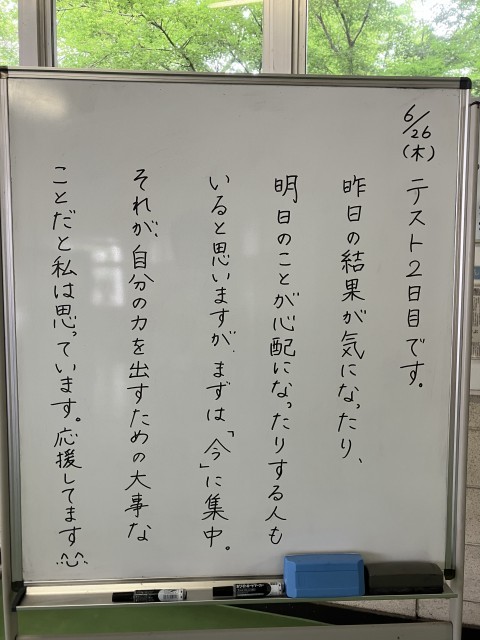 6/26
(木)
テスト2日目です。
昨日の結果が気になったり、
明日のことが心配になったりする人も
いると思いますが、まずは「今」に集中。
それが、自分の力を出すための大事な
ことだと私は思っています。応援してます